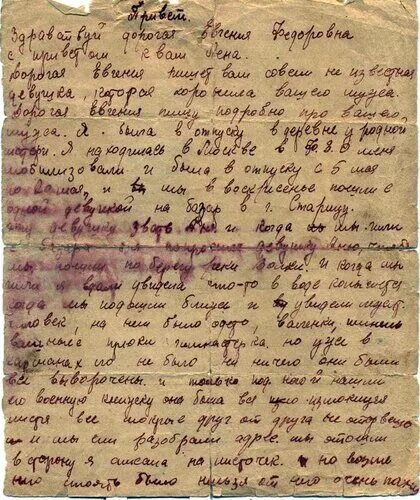 Привет.
Здравствуй дорогая Евгения Федоровна
с приветом к вам Лена.
Дорогая Евгения пишет вам совсем не известная
девушка, которая хоронила вашего мужа.
Дорогая Евгения пишу подробно про вашего
мужа. Я была в отпуску в деревне у родной
матери. Я находилась в Москве в меня
мобилизовали и была в отпуску с 5 мая
по 20 мая, и мы в воскресенье пошли с
одной девушкой на базар в г. Старицу.
эту девушку звать Аня и когда мы шли
с базара я попросила девушку Аню, чтобы
мы пошли по берегу реки Волги. и когда мы
шли я вдали увидела что-то в воде
когда мы подошли ближе и увидели
человек, на нем было одето, валенки,
ватные брюки гимнастерка, но уже в
карманах его не было ни ничего они были
все выворочены. и только под ногой нашли
его военную книжку она была вся
листя все мокрые друг от друга не оторвеш
и мы сми разобрали адрес мы отошли
в сторону я списала на листочек. но возле
него стоять было нельзя от него очень